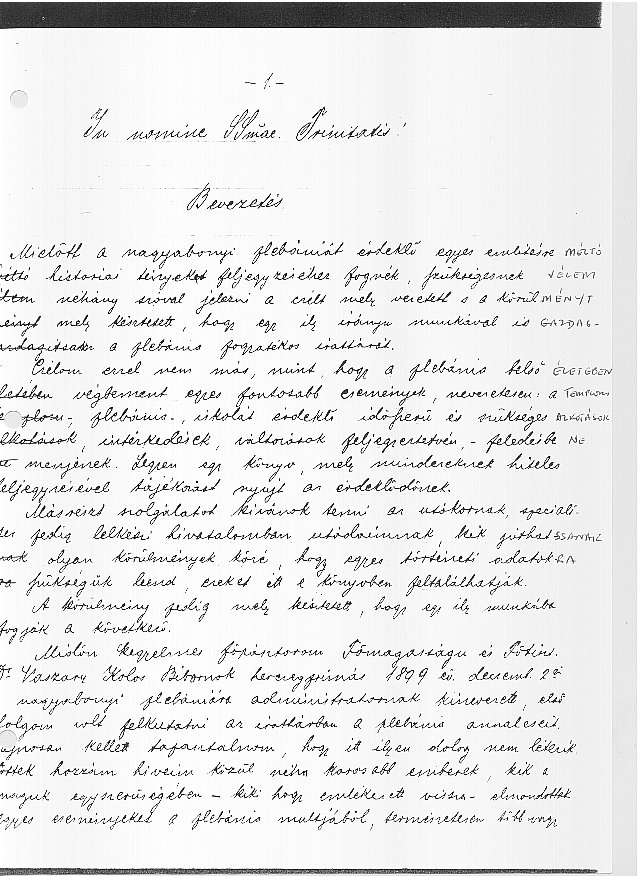 - 1. -
In nomine SSmae. Trinitatis!
Bevezetés
Mielőtt a nagyabonyi plébániát érdeklő egyes említésre MÉLTÓ
méltó historiai tényeket feljegyzéséhez fognék, szükségesnek VÉLEM
vélem néhány szóval jelezni a célt mely vezetett s a körülMÉNYT
ményt mely késztetett, hogy egy ily irányu munkával is GAZDAG-
gazdagitsam a plébánia fogyatékos irattárát.
Célom ezzel nem más, mint, hogy a plébánia belső ÉLETÉBEN
életében végbement egyes fontosabb események, nevezetesen: a TEMPLOM
templom-, plébánia-, iskolát érdeklő időszerű és szükséges ALKOTÁSOK
alkotások, intézkedések, változások feljegyeztetvén, - feledésbe NE
ne menjének. Legyen egy könyv, mely mindezeknek hiteles
feljegyzésével tájékozást nyujt az érdeklődőnek.
Másrészt szolgálatot kivánok tenni az utókornak, speciali-
ter pedig lelkészi hivatalomban utódaimnak, kik juthatSSANAK
nak olyan körülmények közé, hogy egyes történeti adatokRA
ra szükségük leend, ezeket itt e könyvben feltalálhatják.
A körülmény pedig mely késztetett, hogy egy ily munkába
fogjak a következő.
Midőn kegyelmes főpásztorom Főmagasságu és Főtiszt.
Dr. Vaszary Kolos Bibornok hercegprimás 1899 év. decemb. 2án
nagyabonyi plébániára administratornak kinevezett, első
dolgom volt felkutatni az irattárban a plébánia annaleseit.
Sajnosan kellett tapasztalnom, hogy itt ilyen dolog nem létezik.
Jöttek hozzám híveim közül néha korosabb emberek, kik a
maguk egyszerűségében - kiki hogy emlékezett vissza - elmondottak
egyes eseményeket a plébánia multjából, természetesen több vagy